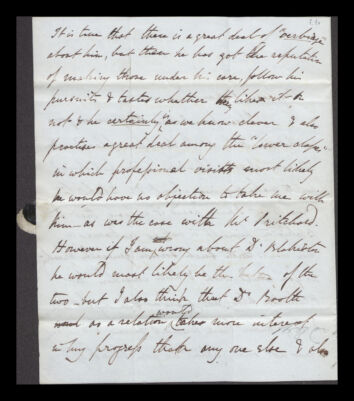 It is true that there is a great deal of "overbridge"
about him, but then he has got the reputation
of making those under his care, follow his
pursuits & tastes whether they like it or
not & he certainly, as we know clever & also
practises a great deal among the "lower class"
in which professional visits most likely
he would have no objection to take me with
him as was the case with Mr Pritchard.
However if I am wrong about Dr
he would most likely be the of the
two - but I also think that Dr Booth
as a relation would take more interest
in my progress than any one else & also